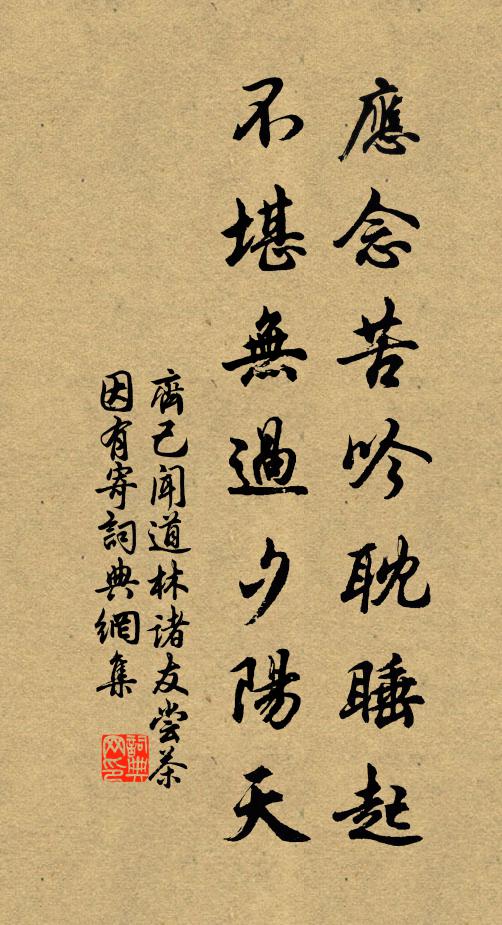 應念苦吟耽睡起
不堪無過夕陽天
齊己聞道林諸友嘗茶
因有寄詞典網集
詞典
网印